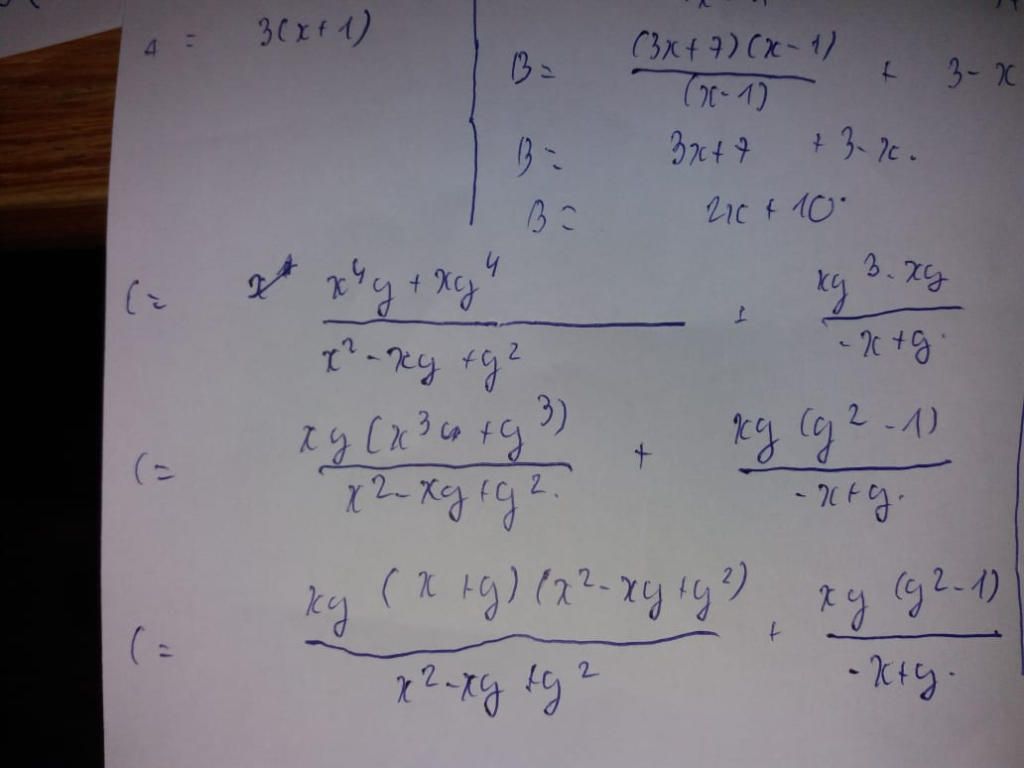 A = 3(x+1)
B = (3x+7)(x-1) / (x-1) + 3-x
B = 3x+7 + 3-x.
B = 2x + 10.
C = x⁴y + xy⁴ / x² - xy + y² + xy³ - xy / -x+y.
C = xy(x³ + y³) / x² - xy + y². + xy(y² - 1) / -x+y.
C = xy (x + y)(x² - xy + y²) / x² - xy + y² + xy (y² - 1) / -x+y.